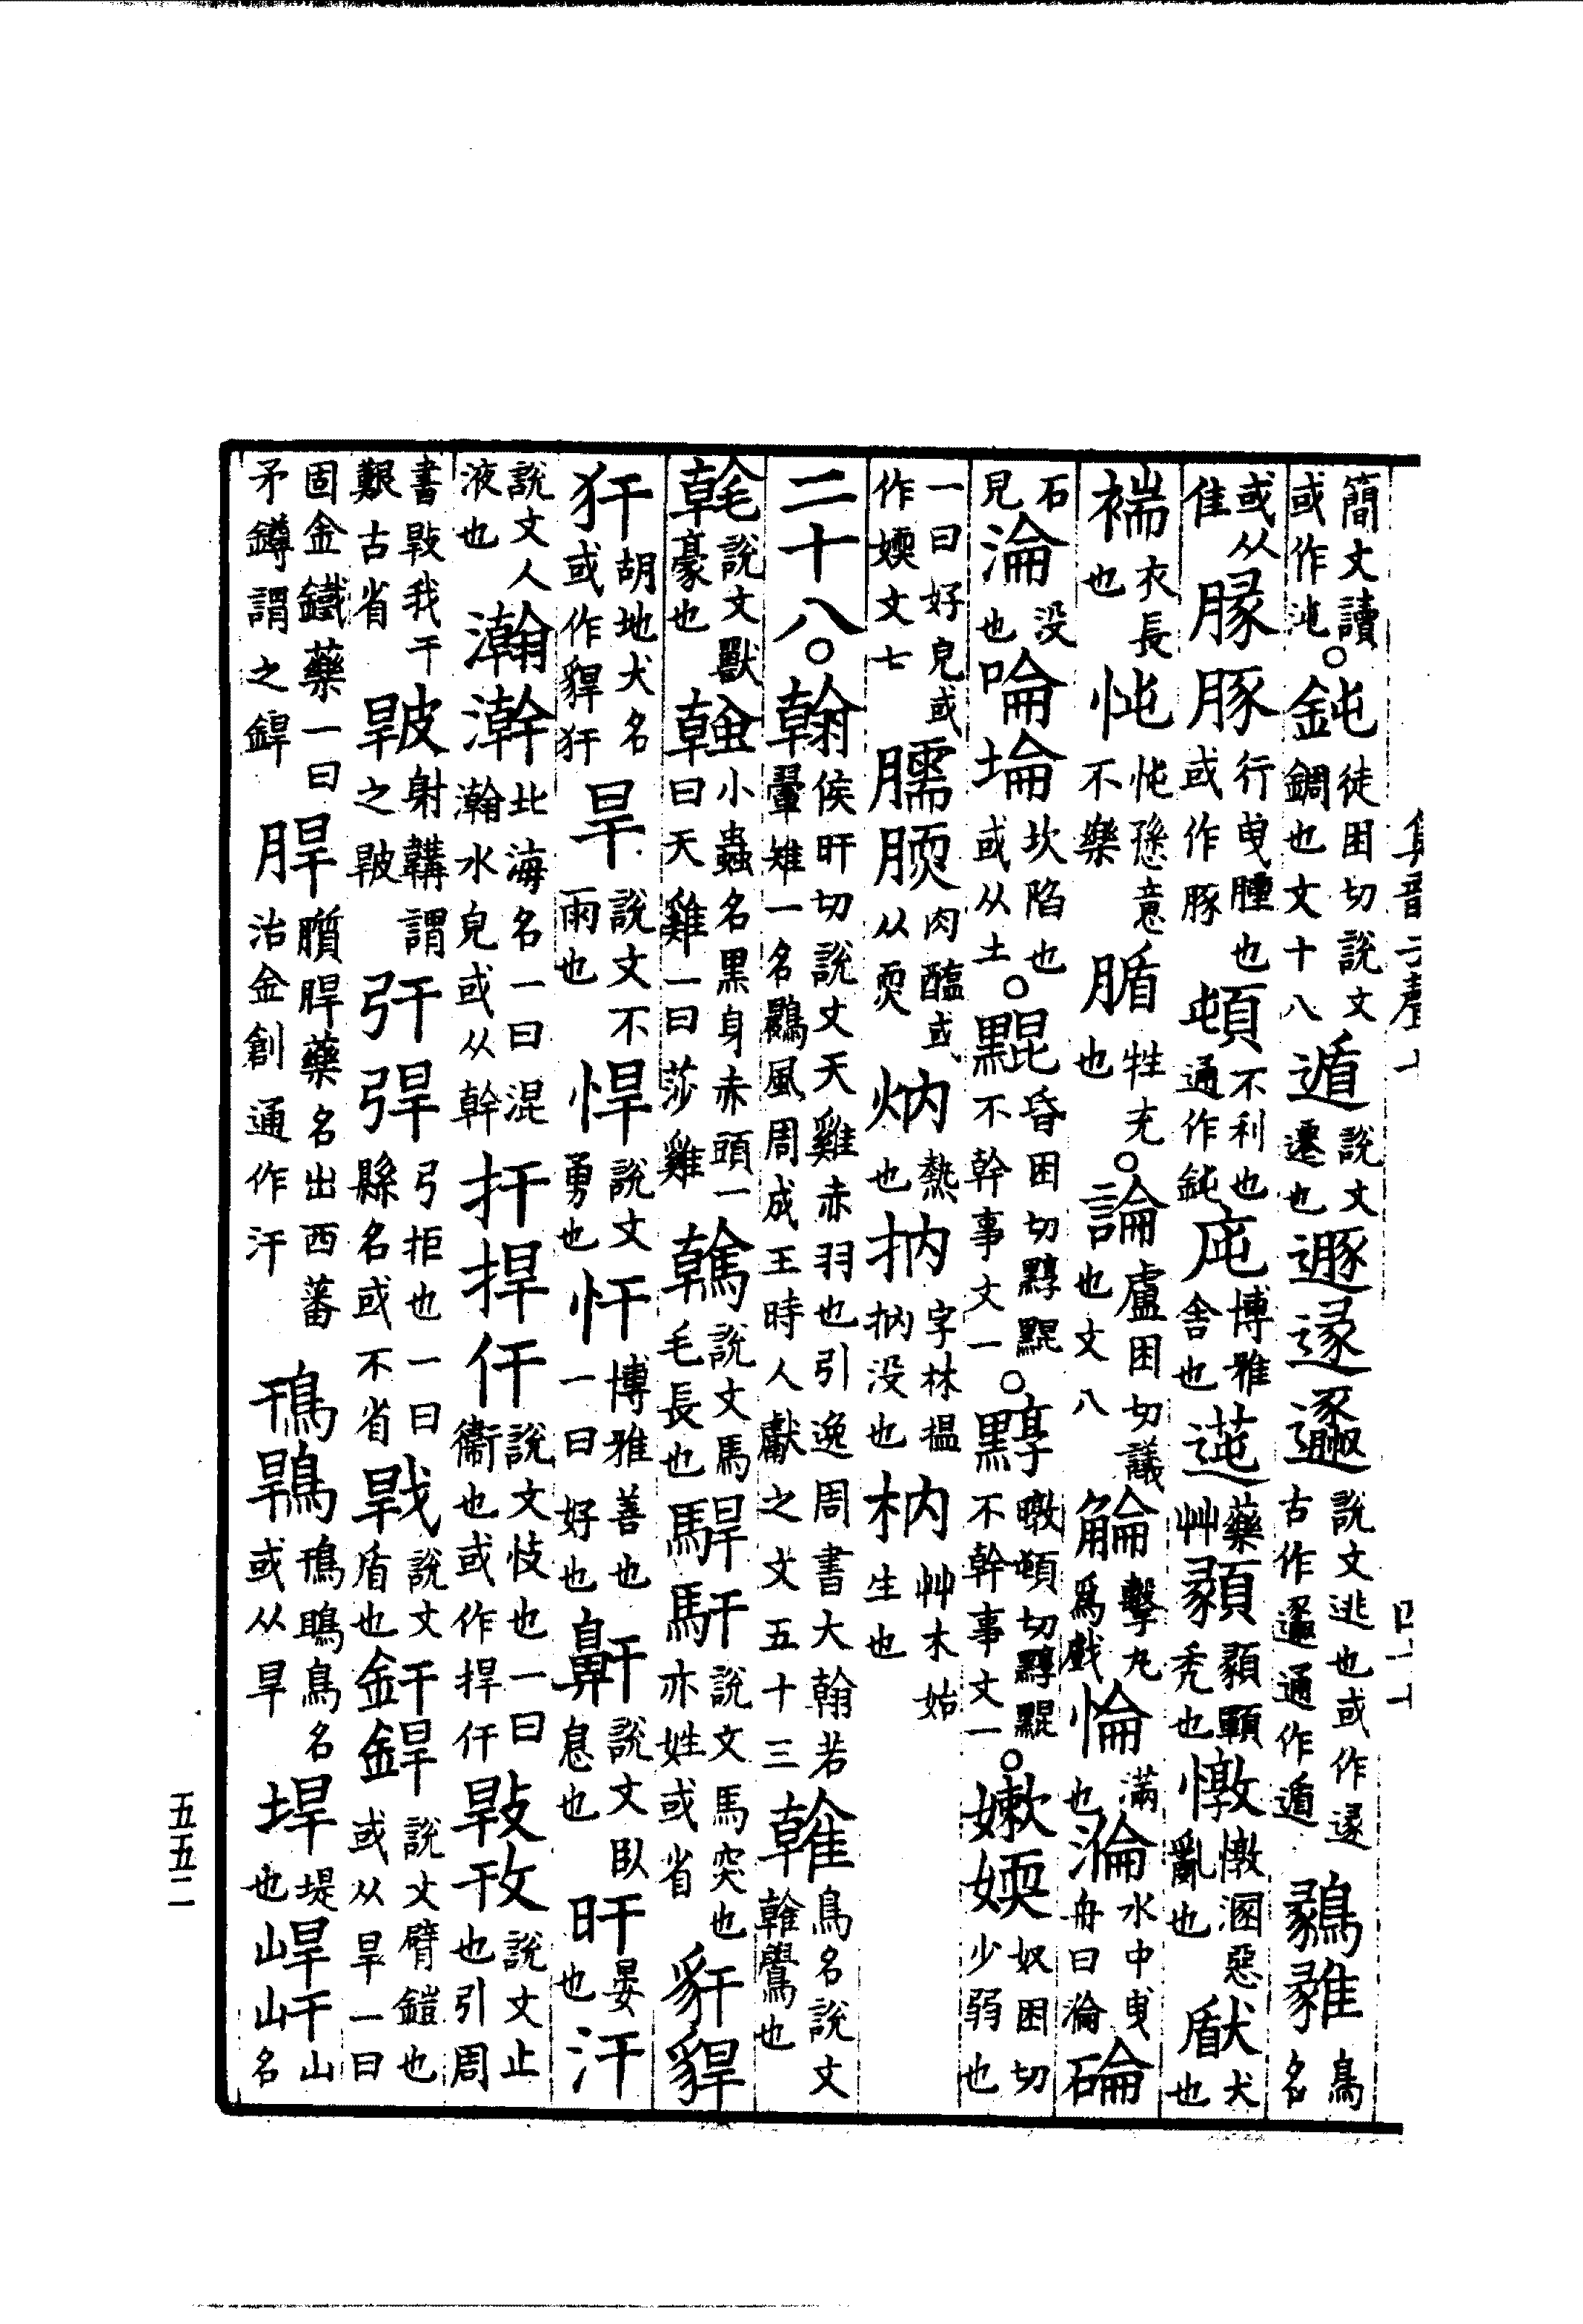 簡文讀或作沌○鈍徒困切說文錭也文十八遁說文遷也遯逯𨖷說文逃也或作逯古作𨖷通作遁鶨雓鳥名
或从隹腞豚行曳腫也或作豚頓不利也通作鈍庉博雅舍也蓮藥艸顡顡顐禿也憞憞溷惡亂也犬也
褍衣長也忳忳愻意不樂腯牲充也○論盧困切議也文八𧤻擊丸爲戲惀滿也淪水中曳舟曰淪碖
石見淪没也㖮埨坎陷也或从土○䵪昏困切䵍䵪不幹事文一○䵍暾頓切䵍䵪不幹事文一○嫰媆奴困切少弱也
一曰好皃或作媆文七臑腝肉醢或从耎炳熱也抐字林揾抐没也枘艸木始生也
二十八○翰侯旰切說文天雞赤羽也引逸周書大翰若翬雉一名鷐風周成王時人獻之文五十三雗鳥名說文雗鷽也
𣯶說文獸豪也螒小蟲名黑身赤頭一曰天雞一曰莎雞鶾說文馬毛長也駻馯說文馬突也亦姓或省豻貋
犴胡地犬名或作貋犴旱說文不雨也悍說文勇也忓博雅善也一曰好也鼾說文臥息也旰晏也汗
說文人液也瀚澣北海名一曰混瀚水皃或从幹扞捍仟說文忮也一曰衞也或作捍仟敤攼說文止也引周
書敤我于艱古省皯射韝謂之皯㢨弓拒也一曰縣名或不省戰說文盾也釬銲說文臂鎧也或从旱一曰
固金鐵藥一曰矛鐏謂之銲䏷𦠿䏷藥名出西蕃治金創通作汗鳱鶾鳱鴠鳥名或从旱垾堤也㟁山名
集韻去聲七
四十七
五五二